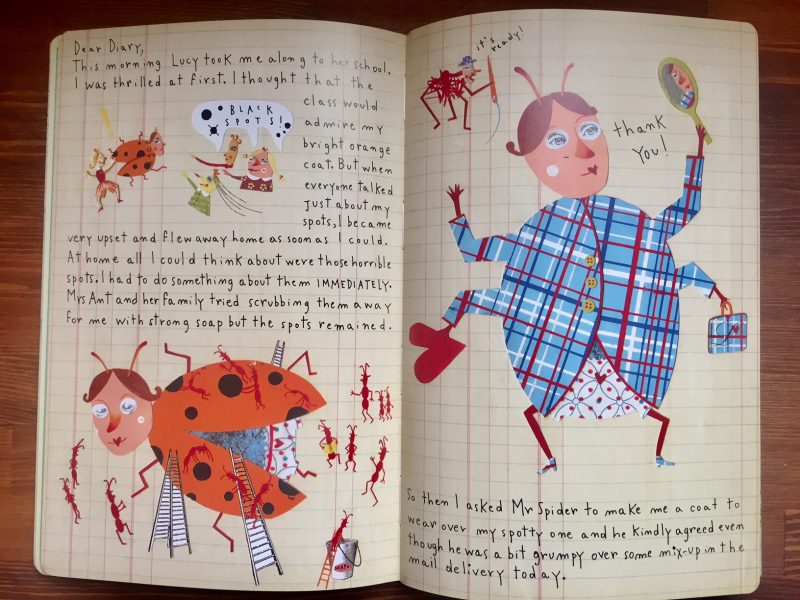 Dear Diary,
This morning Lucy took me along to her school.
I was thrilled at first. I thought that the
class would
admire my
bright orange
coat. But when
everyone talked
just about my
spots, I became
very upset and flew away home as soon as I could.
At home all I could think about were those horrible
spots. I had to do something about them IMMEDIATELY.
Mrs Ant and her family tried scrubbing them away
for me with strong soap but the spots remained.
BLACK
SPOTS!
SOAP
it's
ready!
thank
you!
So then I asked Mr Spider to make me a coat to
wear over my spotty one and he kindly agreed even
though he was a bit grumpy over some mix-up in the
mail delivery today.